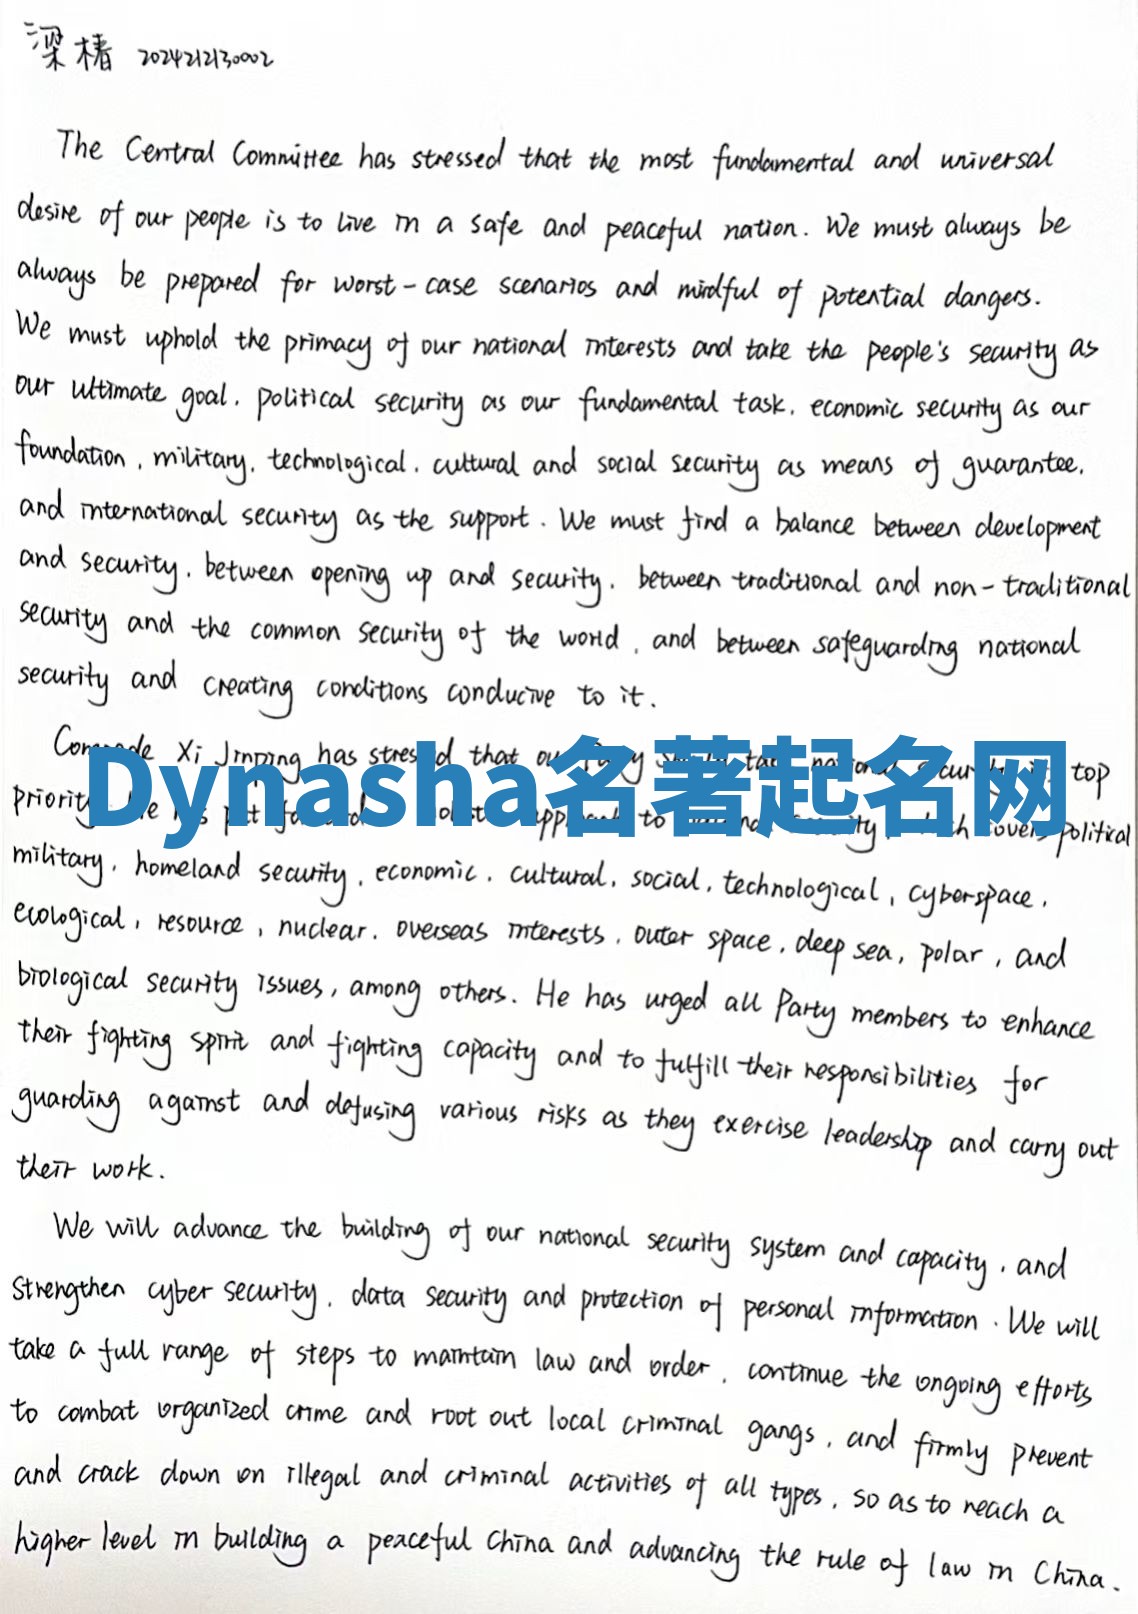 梁椿 2024212130002
The Central Committee has stressed that the most fundamental and universal
desire of our people is to live in a safe and peaceful nation. We must always be
always be prepared for worst-case scenarios and mindful of potential dangers.
We must uphold the primacy of our national interests and take the people's security as
our ultimate goal, political security as our fundamental task, economic security as our
foundation, military, technological, cultural and social security as means of guarantee,
and international security as the support. We must find a balance between development
and security, between opening up and security, between traditional and non-traditional
security and the common security of the world, and between safeguarding national
security and creating conditions conducive to it.
Xi Jinping has that top
Dynasha名著起名网
priority to political
military, homeland security, economic, cultural, social, technological, cyberspace,
ecological, resource, nuclear, overseas interests, outer space, deep sea, polar, and
biological security issues, among others. He has urged all Party members to enhance
their fighting spirit and fighting capacity and to fulfill their responsibilities for
guarding against and defusing various risks as they exercise leadership and carry out
their work.
We will advance the building of our national security system and capacity, and
strengthen cyber security, data security and protection of personal information. We will
take a full range of steps to maintain law and order, continue the ongoing efforts
to combat organized crime and root out local criminal gangs, and firmly prevent
and crack down on illegal and criminal activities of all types, so as to reach a
higher level in building a peaceful China and advancing the rule of law in China.